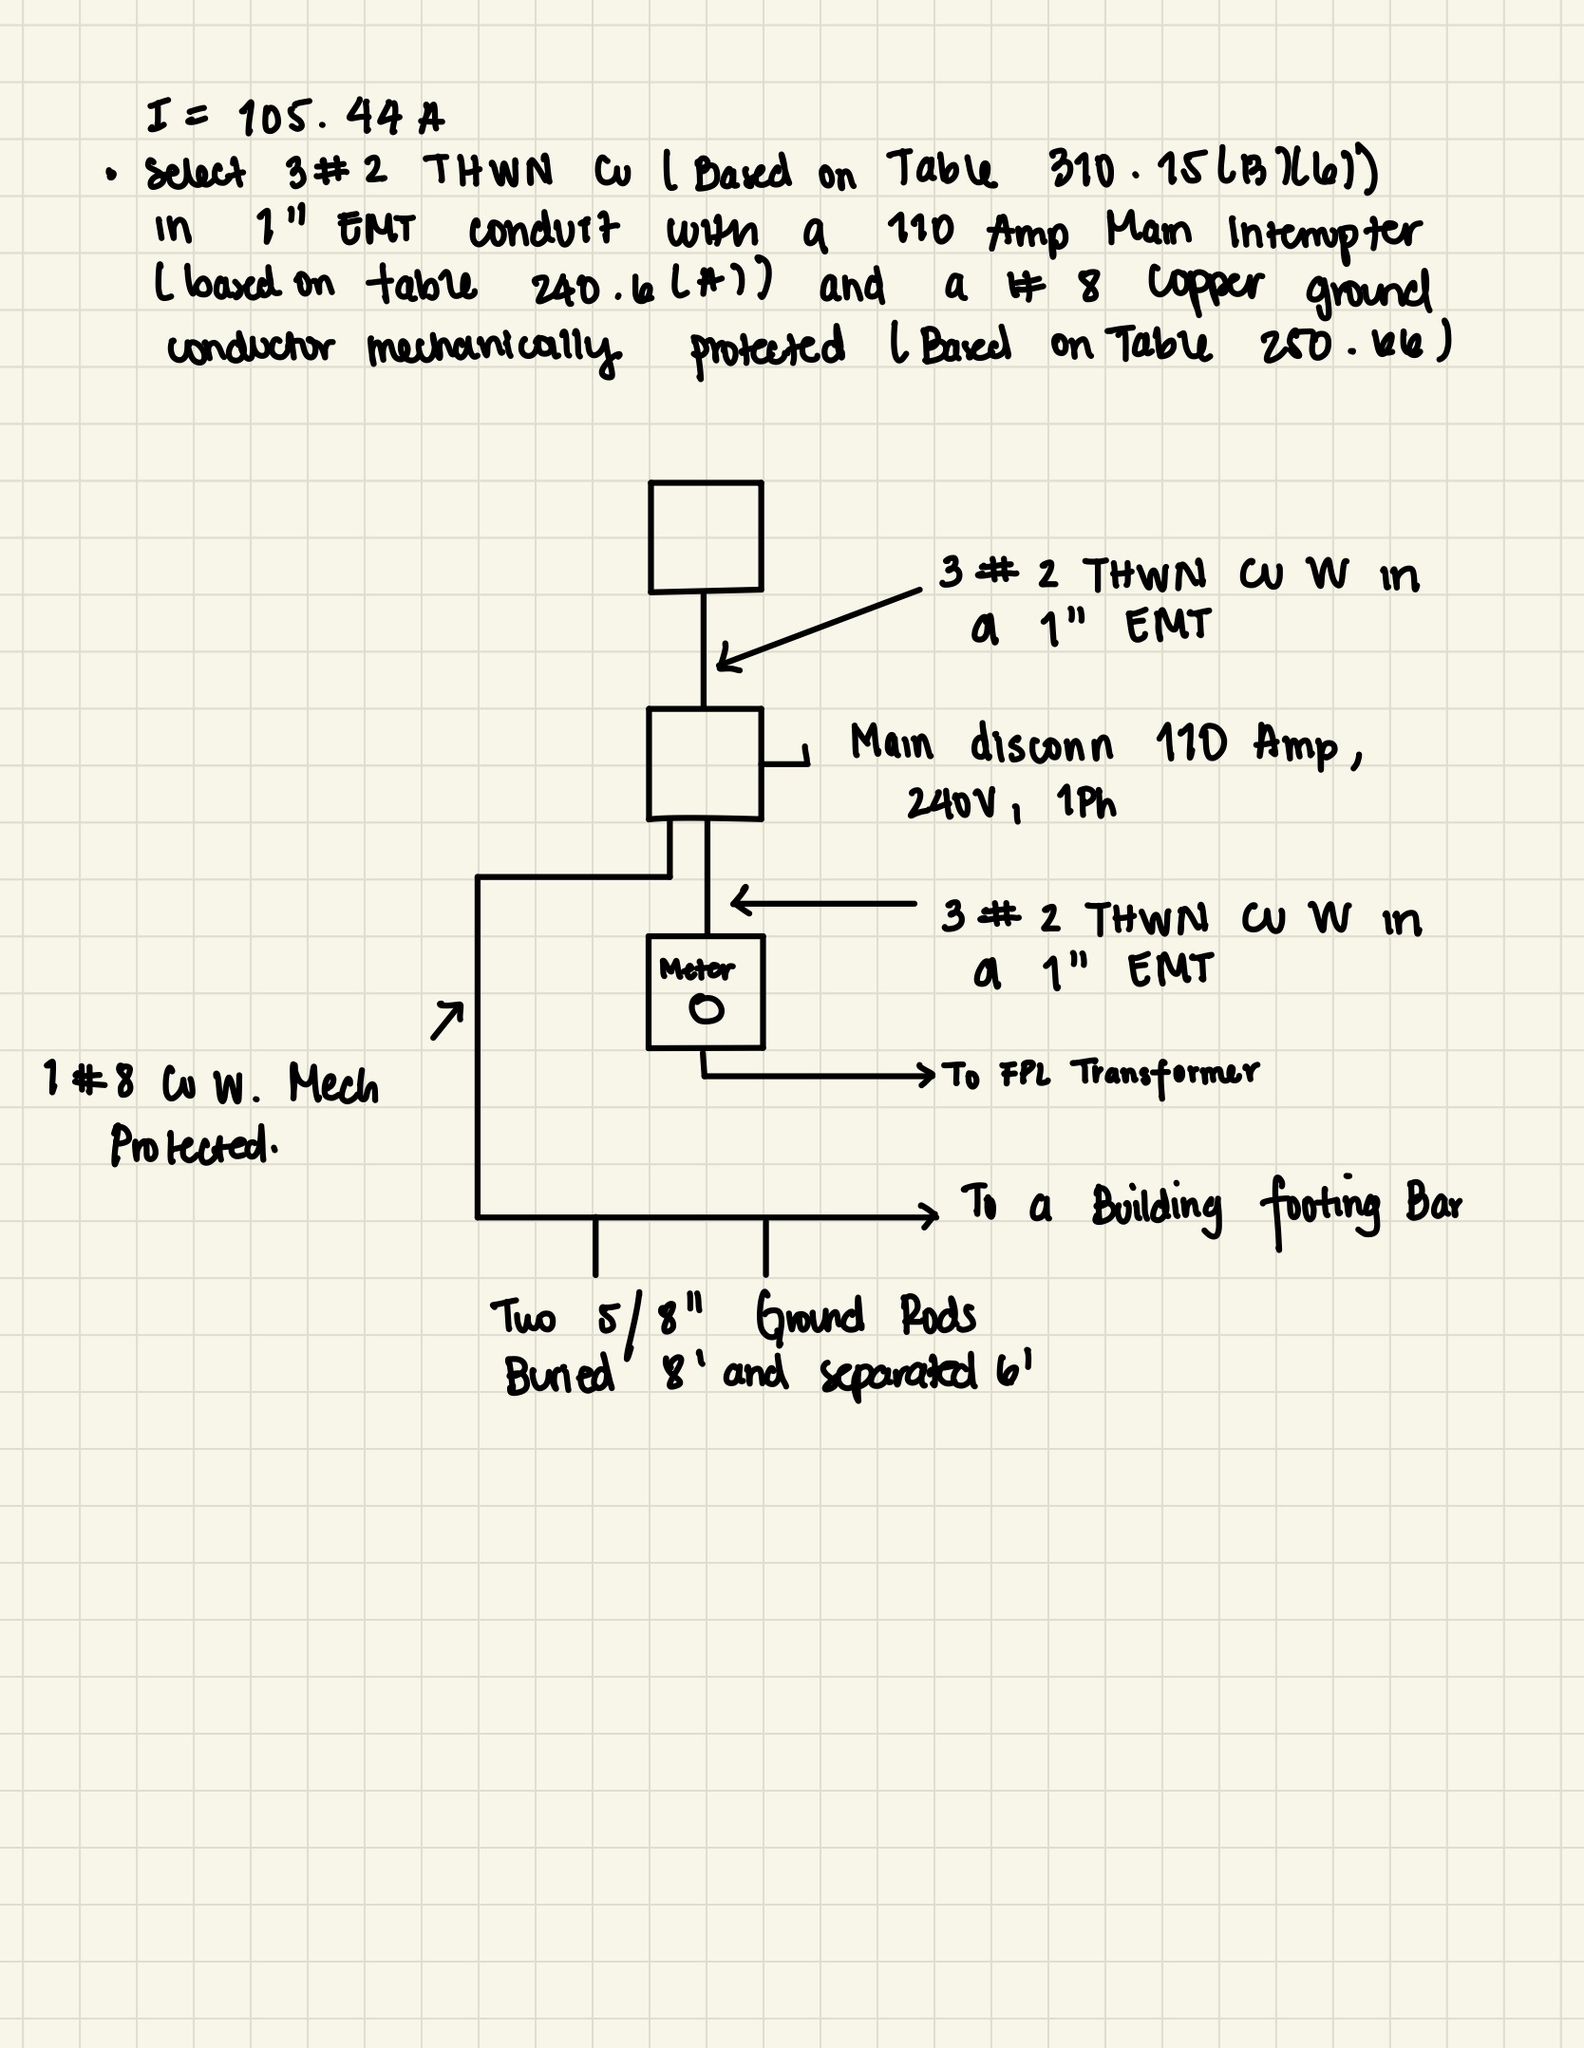 I = 105.44 A
• Select 3#2 THWN Cu (Based on Table 310.15(B)(6))
in 1" EMT conduit with a 110 Amp Main Interrupter
(based on table 240.6(A)) and a #8 Copper ground
conductor mechanically protected (Based on Table 250.66)
3#2 THWN CU W in
a 1" EMT
Main disconn 110 Amp,
240V, 1Ph
3#2 THWN CU W in
a 1" EMT
Meter
To FPL Transformer
1#8 Cu W. Mech
Protected.
To a Building footing Bar
Two 5/8" Ground Rods
Buried 8' and separated 6'